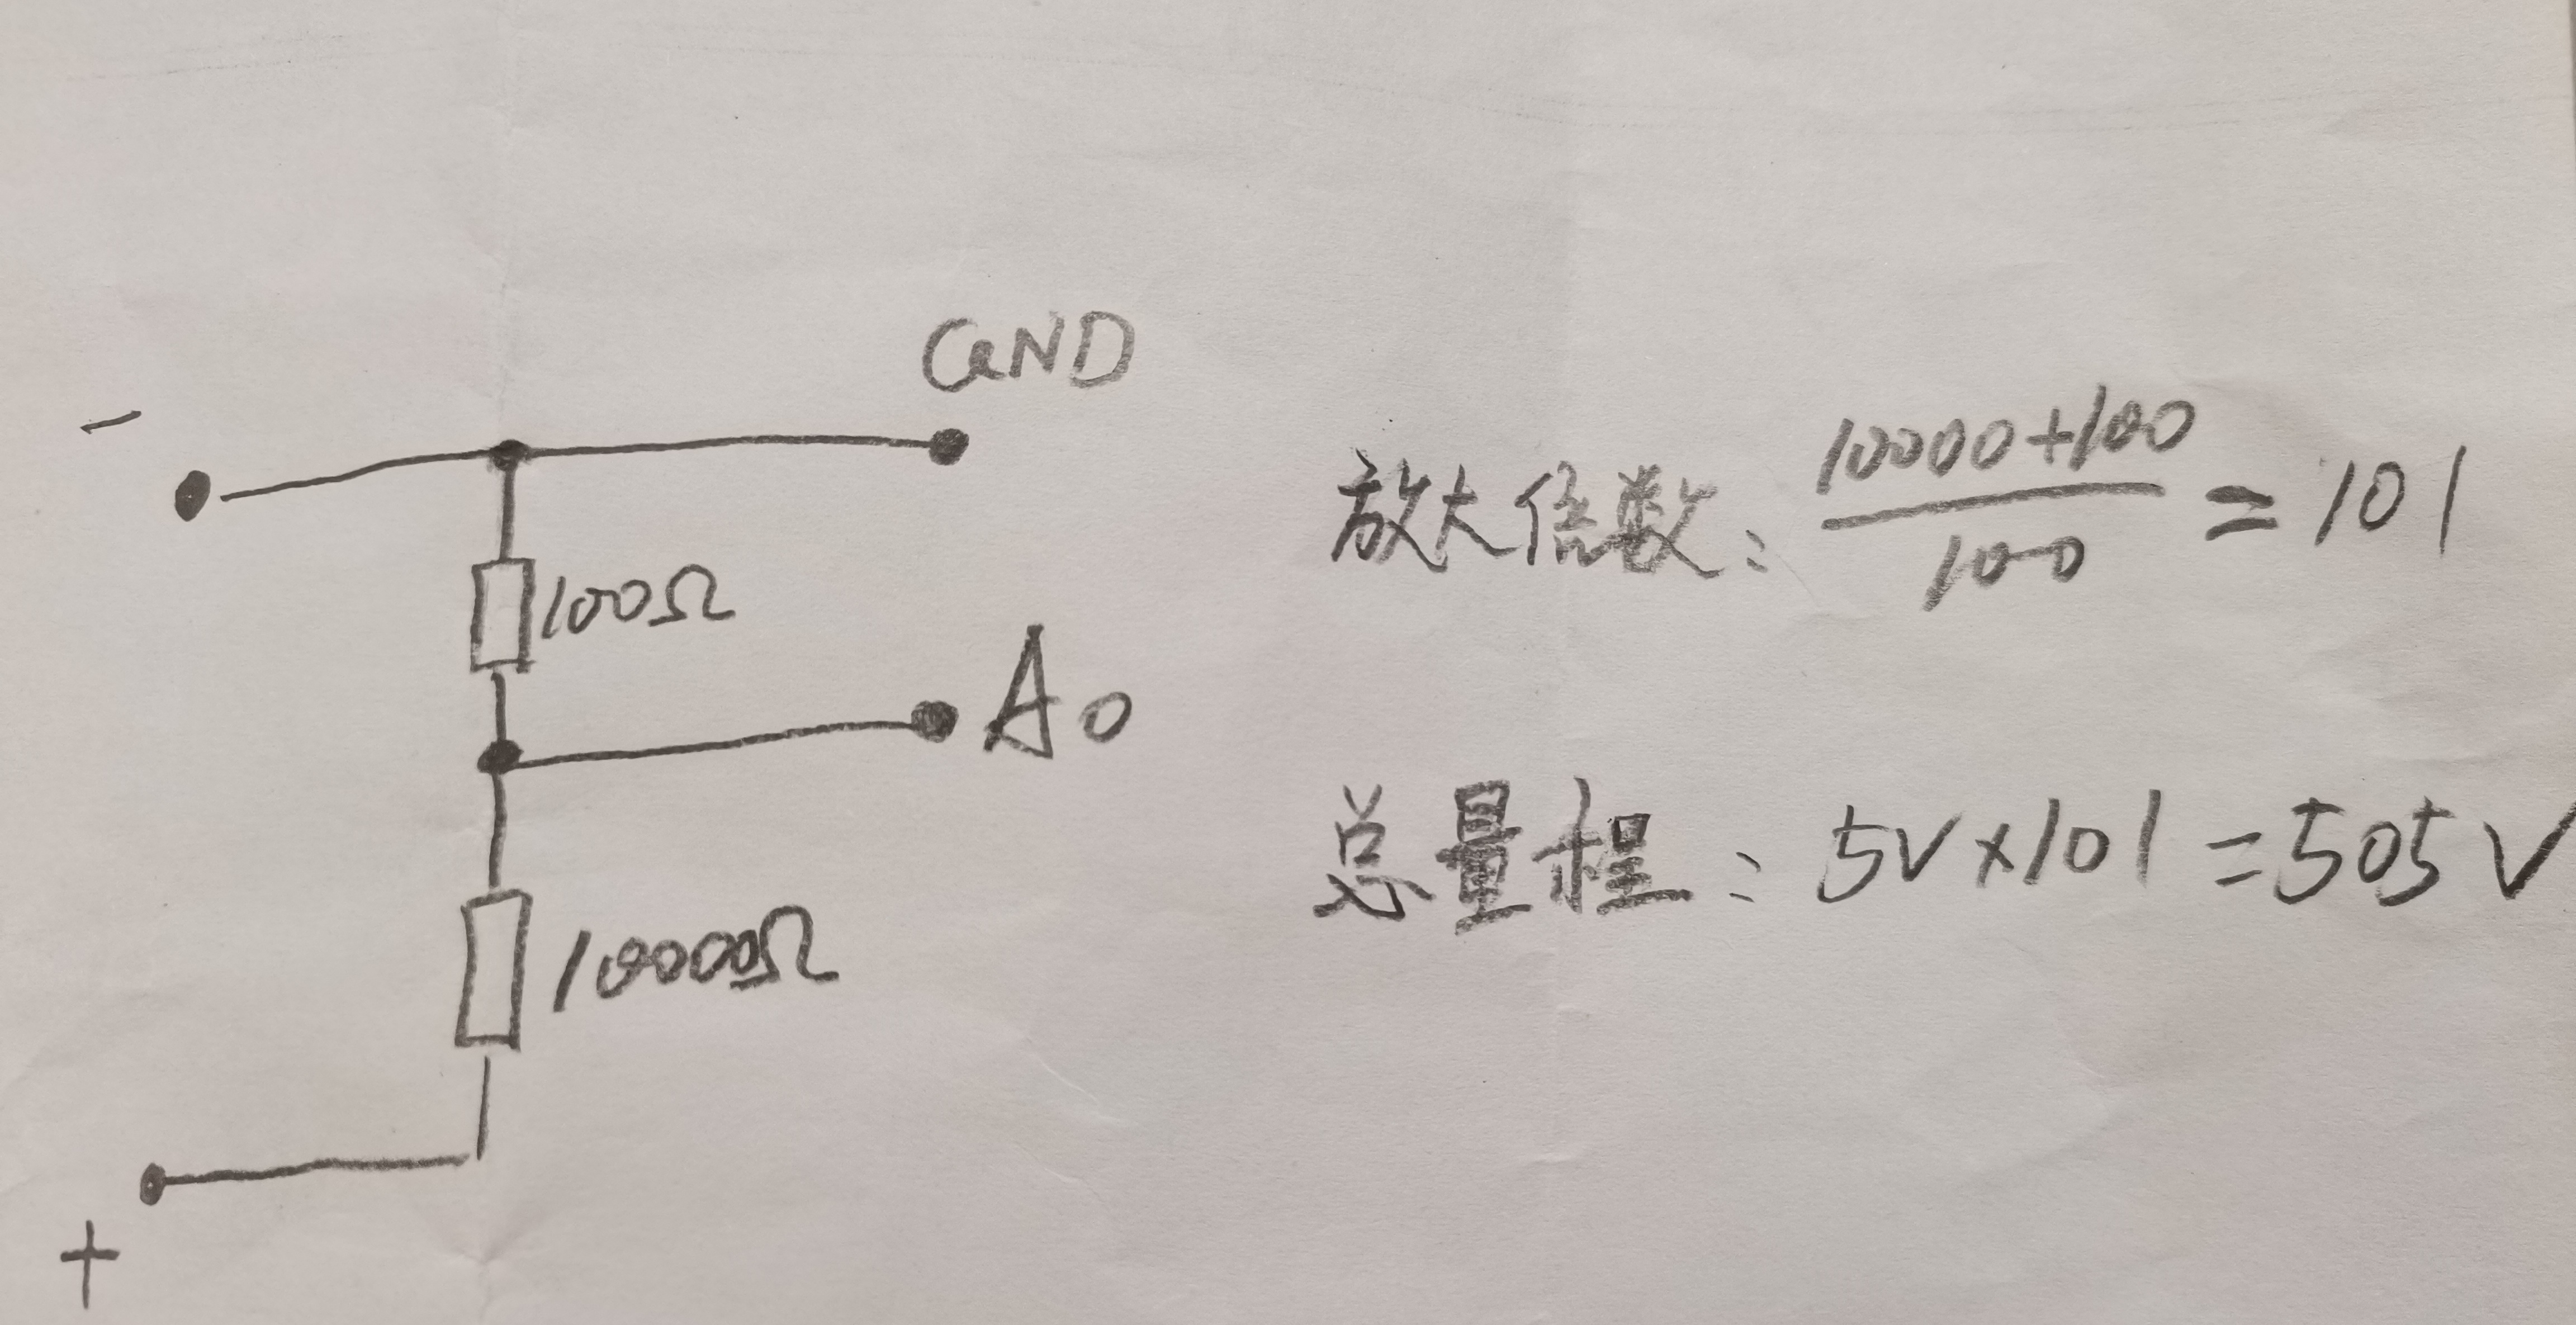 GND
-
100Ω
A0
10000Ω
+
放大倍数: 10000+100
100
=101
总量程: 5V×101=505V